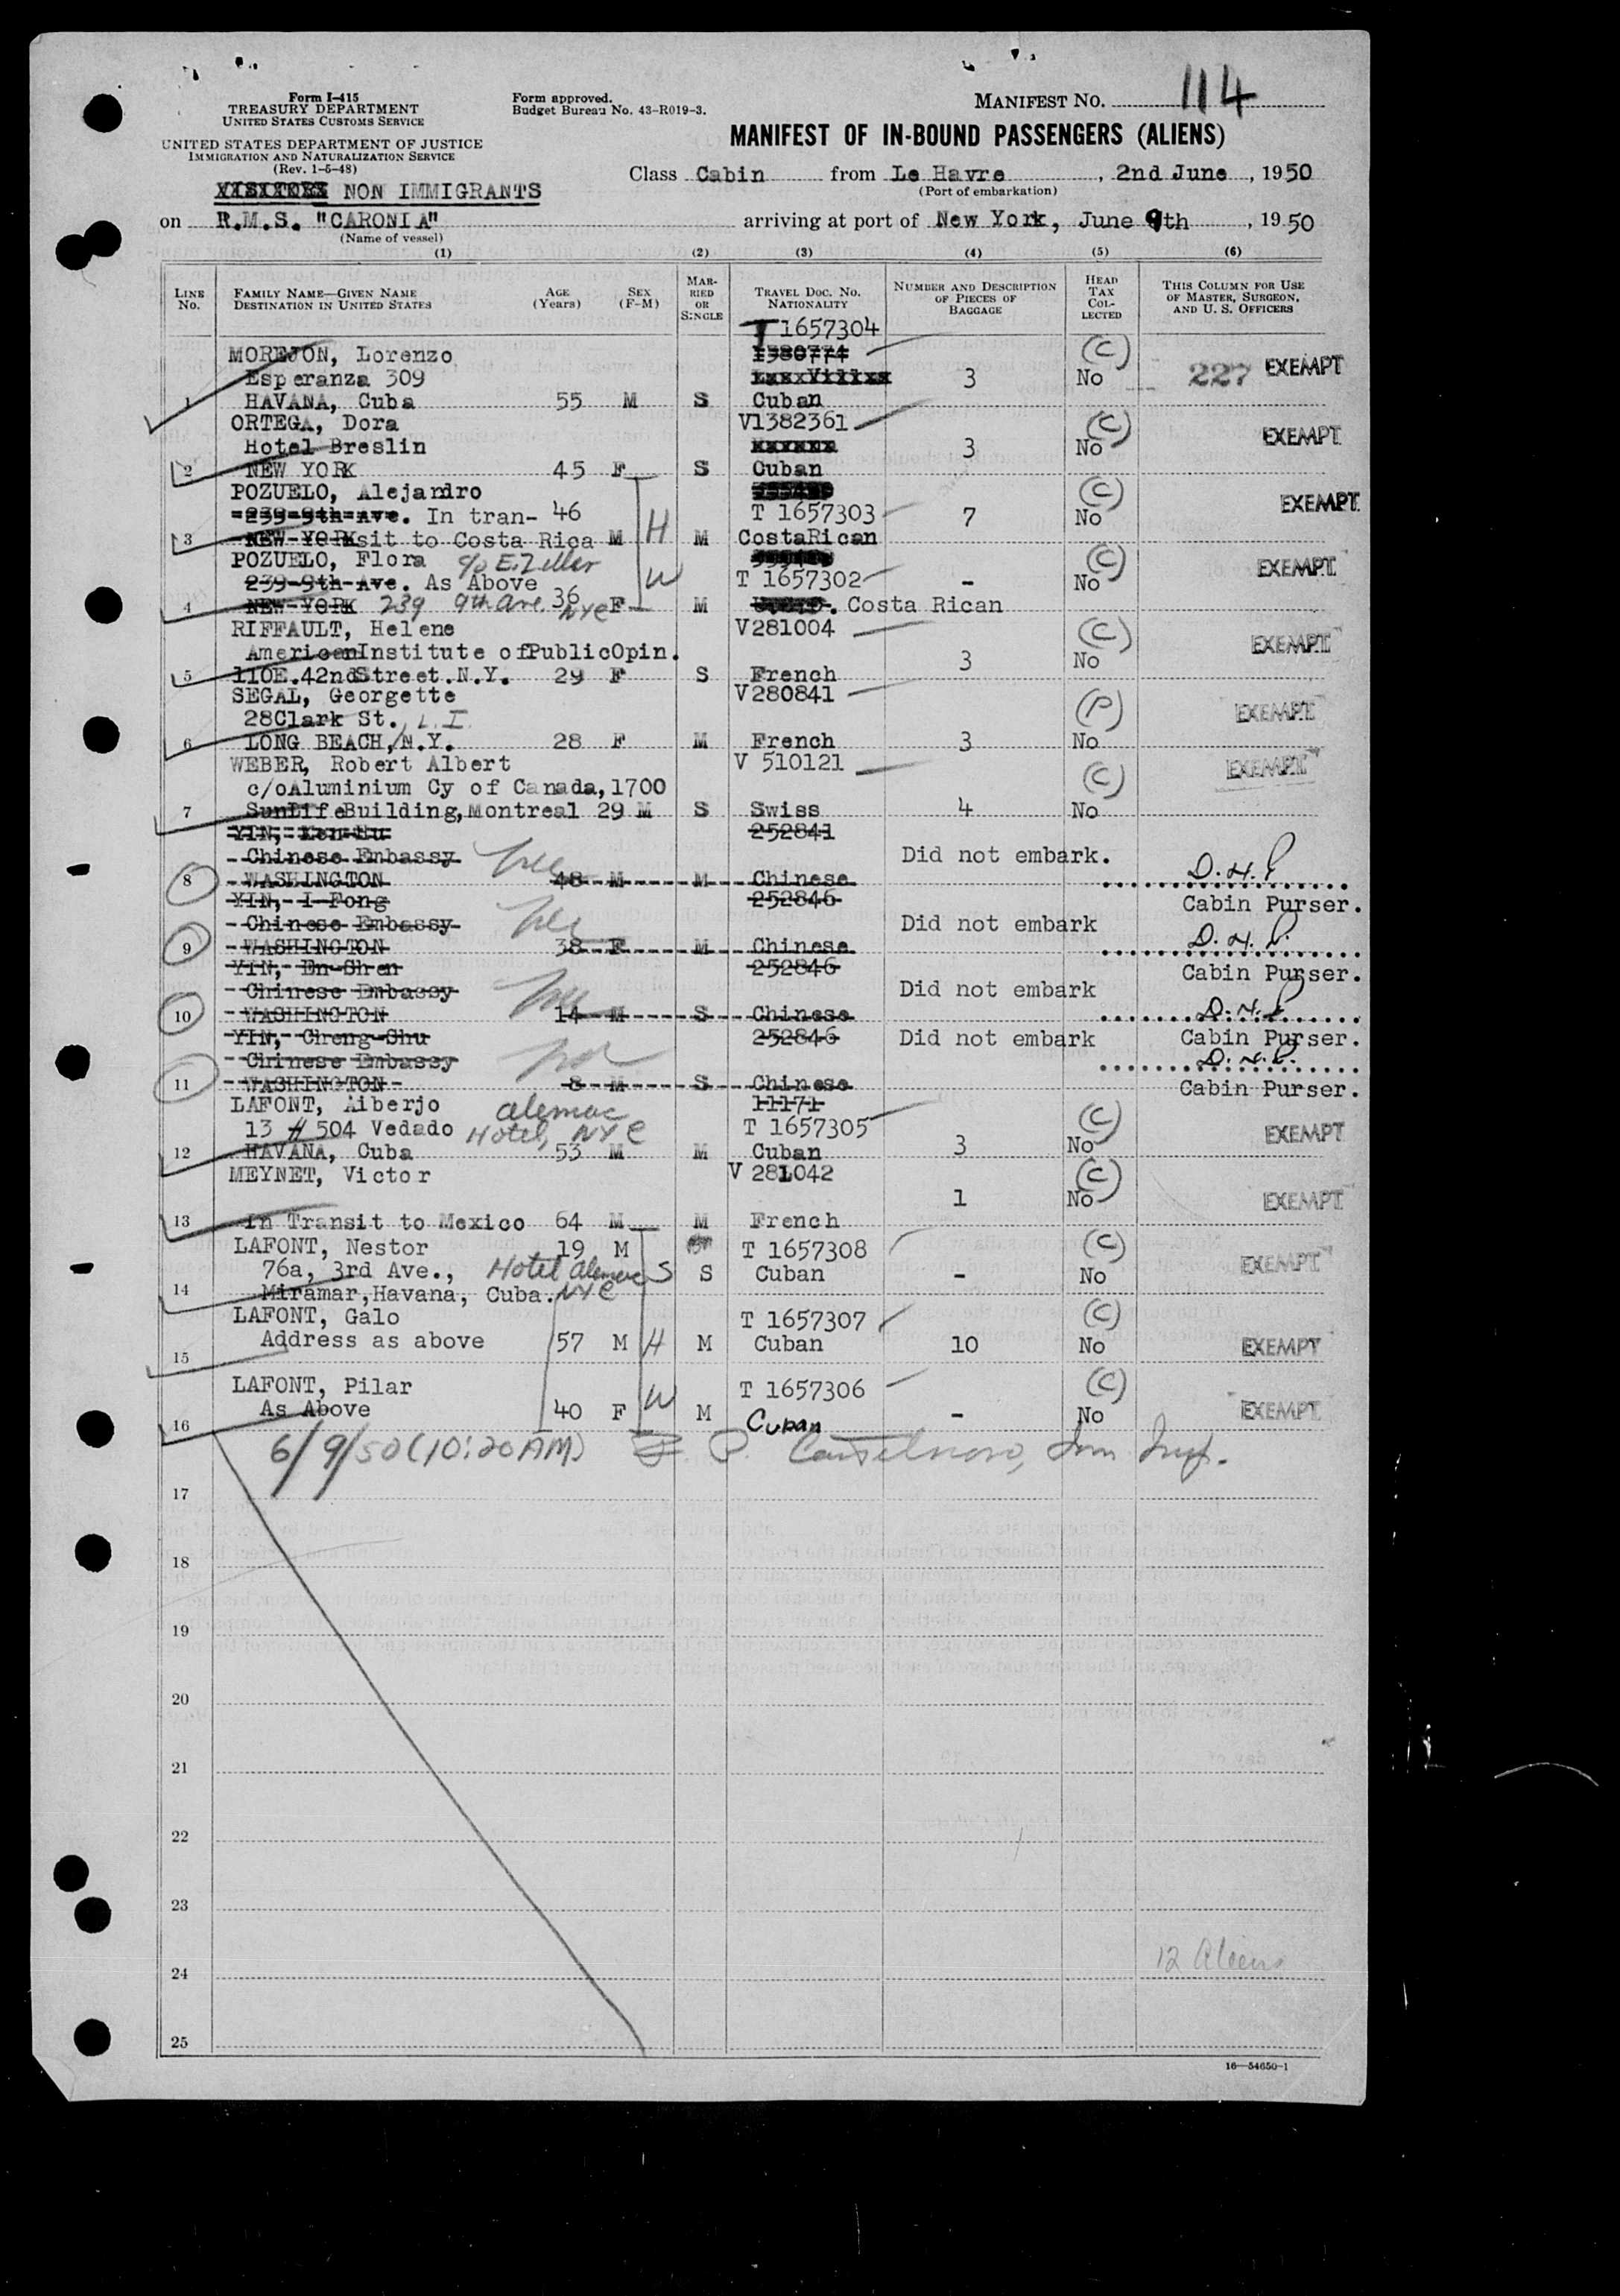 Form I-415
TREASURY DEPARTMENT
UNITED STATES CUSTOMS SERVICE
UNITED STATES DEPARTMENT OF JUSTICE
IMMIGRATION AND NATURALIZATION SERVICE
(Rev. 1-5-48)
Form approved.
Budget Bureau No. 43-R019-3.
MANIFEST NO. 114
MANIFEST OF IN-BOUND PASSENGERS (ALIENS)
Class Cabin from Le Havre, 2nd June, 1950
(Port of embarkation)
VISITORS NON IMMIGRANTS
on R.M.S. "CARONIA" arriving at port of New York, June 9th, 1950
(Name of vessel)
(1) (2) (3) (4) (5) (6)
LINE NO. FAMILY NAME—GIVEN NAME DESTINATION IN UNITED STATES AGE (Years) SEX (F-M) MARRIED OR SINGLE TRAVEL DOC. NO. NATIONALITY NUMBER AND DESCRIPTION OF PIECES OF BAGGAGE HEAD TAX COLLECTED THIS COLUMN FOR USE OF MASTER, SURGEON, AND U. S. OFFICERS
T 1657304
MOREJON, Lorenzo 1380774 (C)
Esperanza 309 3 No 227 EXEMPT
1 HAVANA, Cuba 55 M S Cuban
ORTEGA, Dora V1382361 (C)
Hotel Breslin 3 No EXEMPT
2 NEW YORK 45 F S Cuban
POZUELO, Alejandro (C)
239-9th Ave. In tran- 46 T 1657303 7 No EXEMPT
3 NEW YORK sit to Costa Rica M H M CostaRican
POZUELO, Flora c/o E. Zeller (C)
239-9th Ave. As Above W T 1657302 - No EXEMPT
4 NEW YORK 239 9th Ave. NYC 36 F M Costa Rican
RIFFAULT, Helene V281004 (C)
American Institute of PublicOpin. 3 No EXEMPT
5 110E.42ndStreet.N.Y. 29 F S French
SEGAL, Georgette V280841 (P)
28Clark St., L.I. EXEMPT
6 LONG BEACH, N.Y. 28 F M French 3 No
WEBER, Robert Albert V 510121 (C)
c/oAluminium Cy of Canada,1700 EXEMPT
7 SunLifeBuilding,Montreal 29 M S Swiss 4 No
YIN, Ken-Su 252841
Chinese Embassy Did not embark. D.H.
8 WASHINGTON 48 M M Chinese
YIN, I Fong 252846 Cabin Purser.
Chinese Embassy Did not embark D.H.
9 WASHINGTON 38 F M Chinese
YIN, En-Shen 252846 Cabin Purser.
Chinese Embassy Did not embark
10 WASHINGTON 14 M S Chinese D.H.
YIN, Cheng-Shu 252846 Did not embark Cabin Purser.
Chinese Embassy D.H.
11 WASHINGTON 8 M S Chinese Cabin Purser.
LAFONT, Alberjo Alemac 11171 (C)
13 # 504 Vedado Hotel, NYC T 1657305 EXEMPT
12 HAVANA, Cuba 53 M M Cuban 3 No
MEYNET, Victor V 281042 (C)
1 No EXEMPT
13 In Transit to Mexico 64 M M French
LAFONT, Nestor 19 M T 1657308 (C)
76a, 3rd Ave., Hotel Alemac S S Cuban - No EXEMPT
14 Miramar,Havana, Cuba. NYC
LAFONT, Galo T 1657307 (C)
Address as above 57 M H M Cuban 10 No EXEMPT
15
LAFONT, Pilar T 1657306 (C)
As Above 40 F W M Cuban - No EXEMPT
16
6/9/50 (10:20 AM)
17
18
19
20
21
22
23
12 Aliens
24
25
16—54650-1